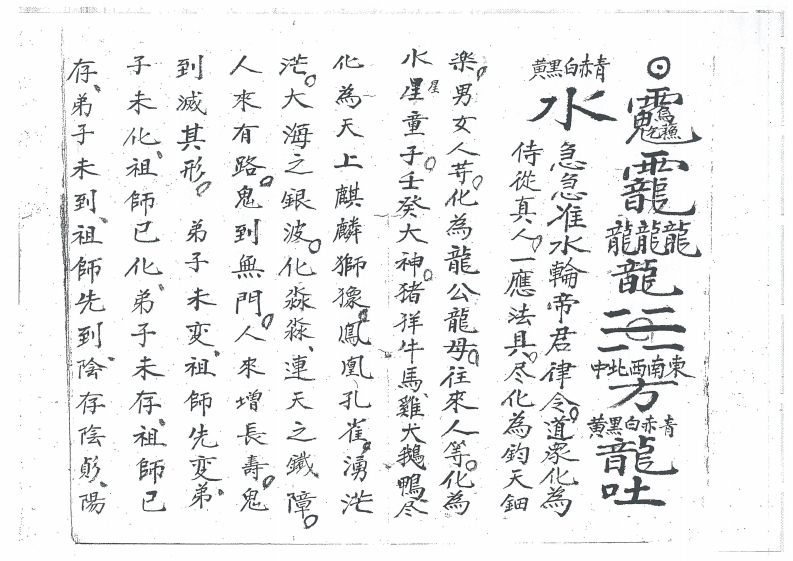 東南西北中
方
青赤白黑黃
龍
吐
青赤白黑黃
水
急急准水輪帝君律令。道眾化為
侍從真人。一應法具。尽化為鈞天鈿
楽。男女人䓁。化為龍公龍母。往來人等。化為
水星童子。壬癸大神。猪羊牛馬、雞犬鵝鴨、尽
化為天上麒麟獅㺔。鳳凰孔雀。湧茫
茫。大海之銀波。化淼淼、連天之鐵障。
人來有路。鬼到無門。人來增長壽。鬼
到滅其形。弟子未変、祖師先変。弟
子未化、祖師已化、弟子未存、祖師已
存、弟子未到、祖師先到、陰存陰𠔃、陽